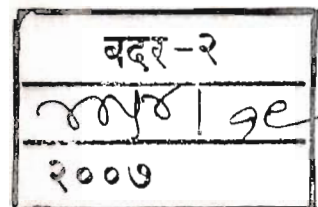 बदर-२
१९
२००७